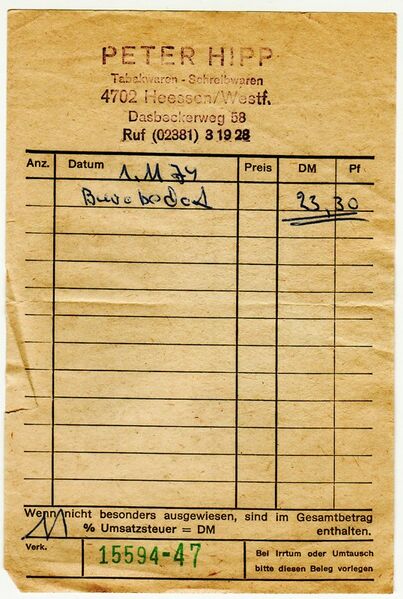 PETER HIPP
Tabakwaren - Schreibwaren
4702 Heessen/Westf.
Dasbeckerweg 58
Ruf (02381) 3 19 28
Anz. Datum 1.11.74 Preis DM Pf
Burobedarf 23,30
Wenn nicht besonders ausgewiesen, sind im Gesamtbetrag
11 % Umsatzsteuer = DM enthalten.
Verk. 15594-47 Bei Irrtum oder Umtausch
bitte diesen Beleg vorlegen